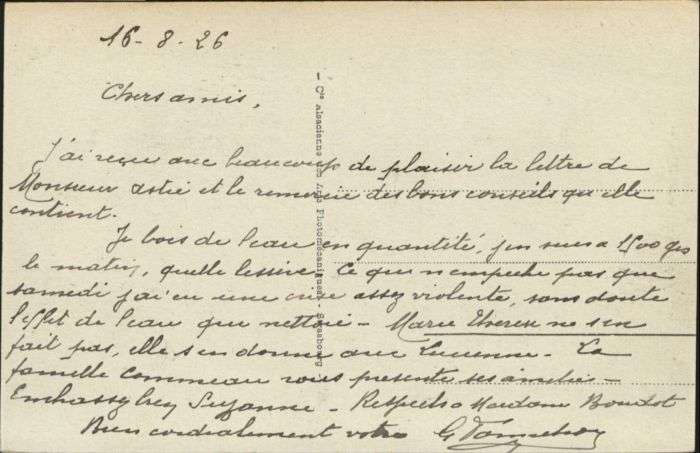 16-8-26
Chers amis,
J'ai reçu avec beaucoup de plaisir la lettre de
Monsieur Astié et le remercie des bons conseils qu'elle
contient.
Je bois de l'eau en quantité, j'en suis à 1500 grs
le matin, quelle lessive. Ce qui n'empêche pas que
samedi j'ai eu une crise assez violente, sans doute
l'effet de l'eau qui nettoie - Marie Therese ne s'en
fait pas, elle s'en donne avec Lucienne - La
famille Commeau vous présente ses amitiés -
Embrassez Suzanne - Respects à Madame Boudot
Bien cordialement votre G
- Cie alsacienne des Arts Photomécaniques, Strasbourg -